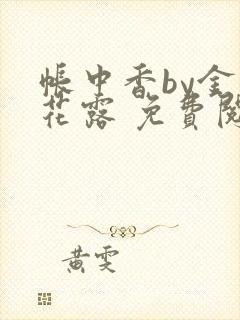 帳中香by金
花露 免費閱
黃雯